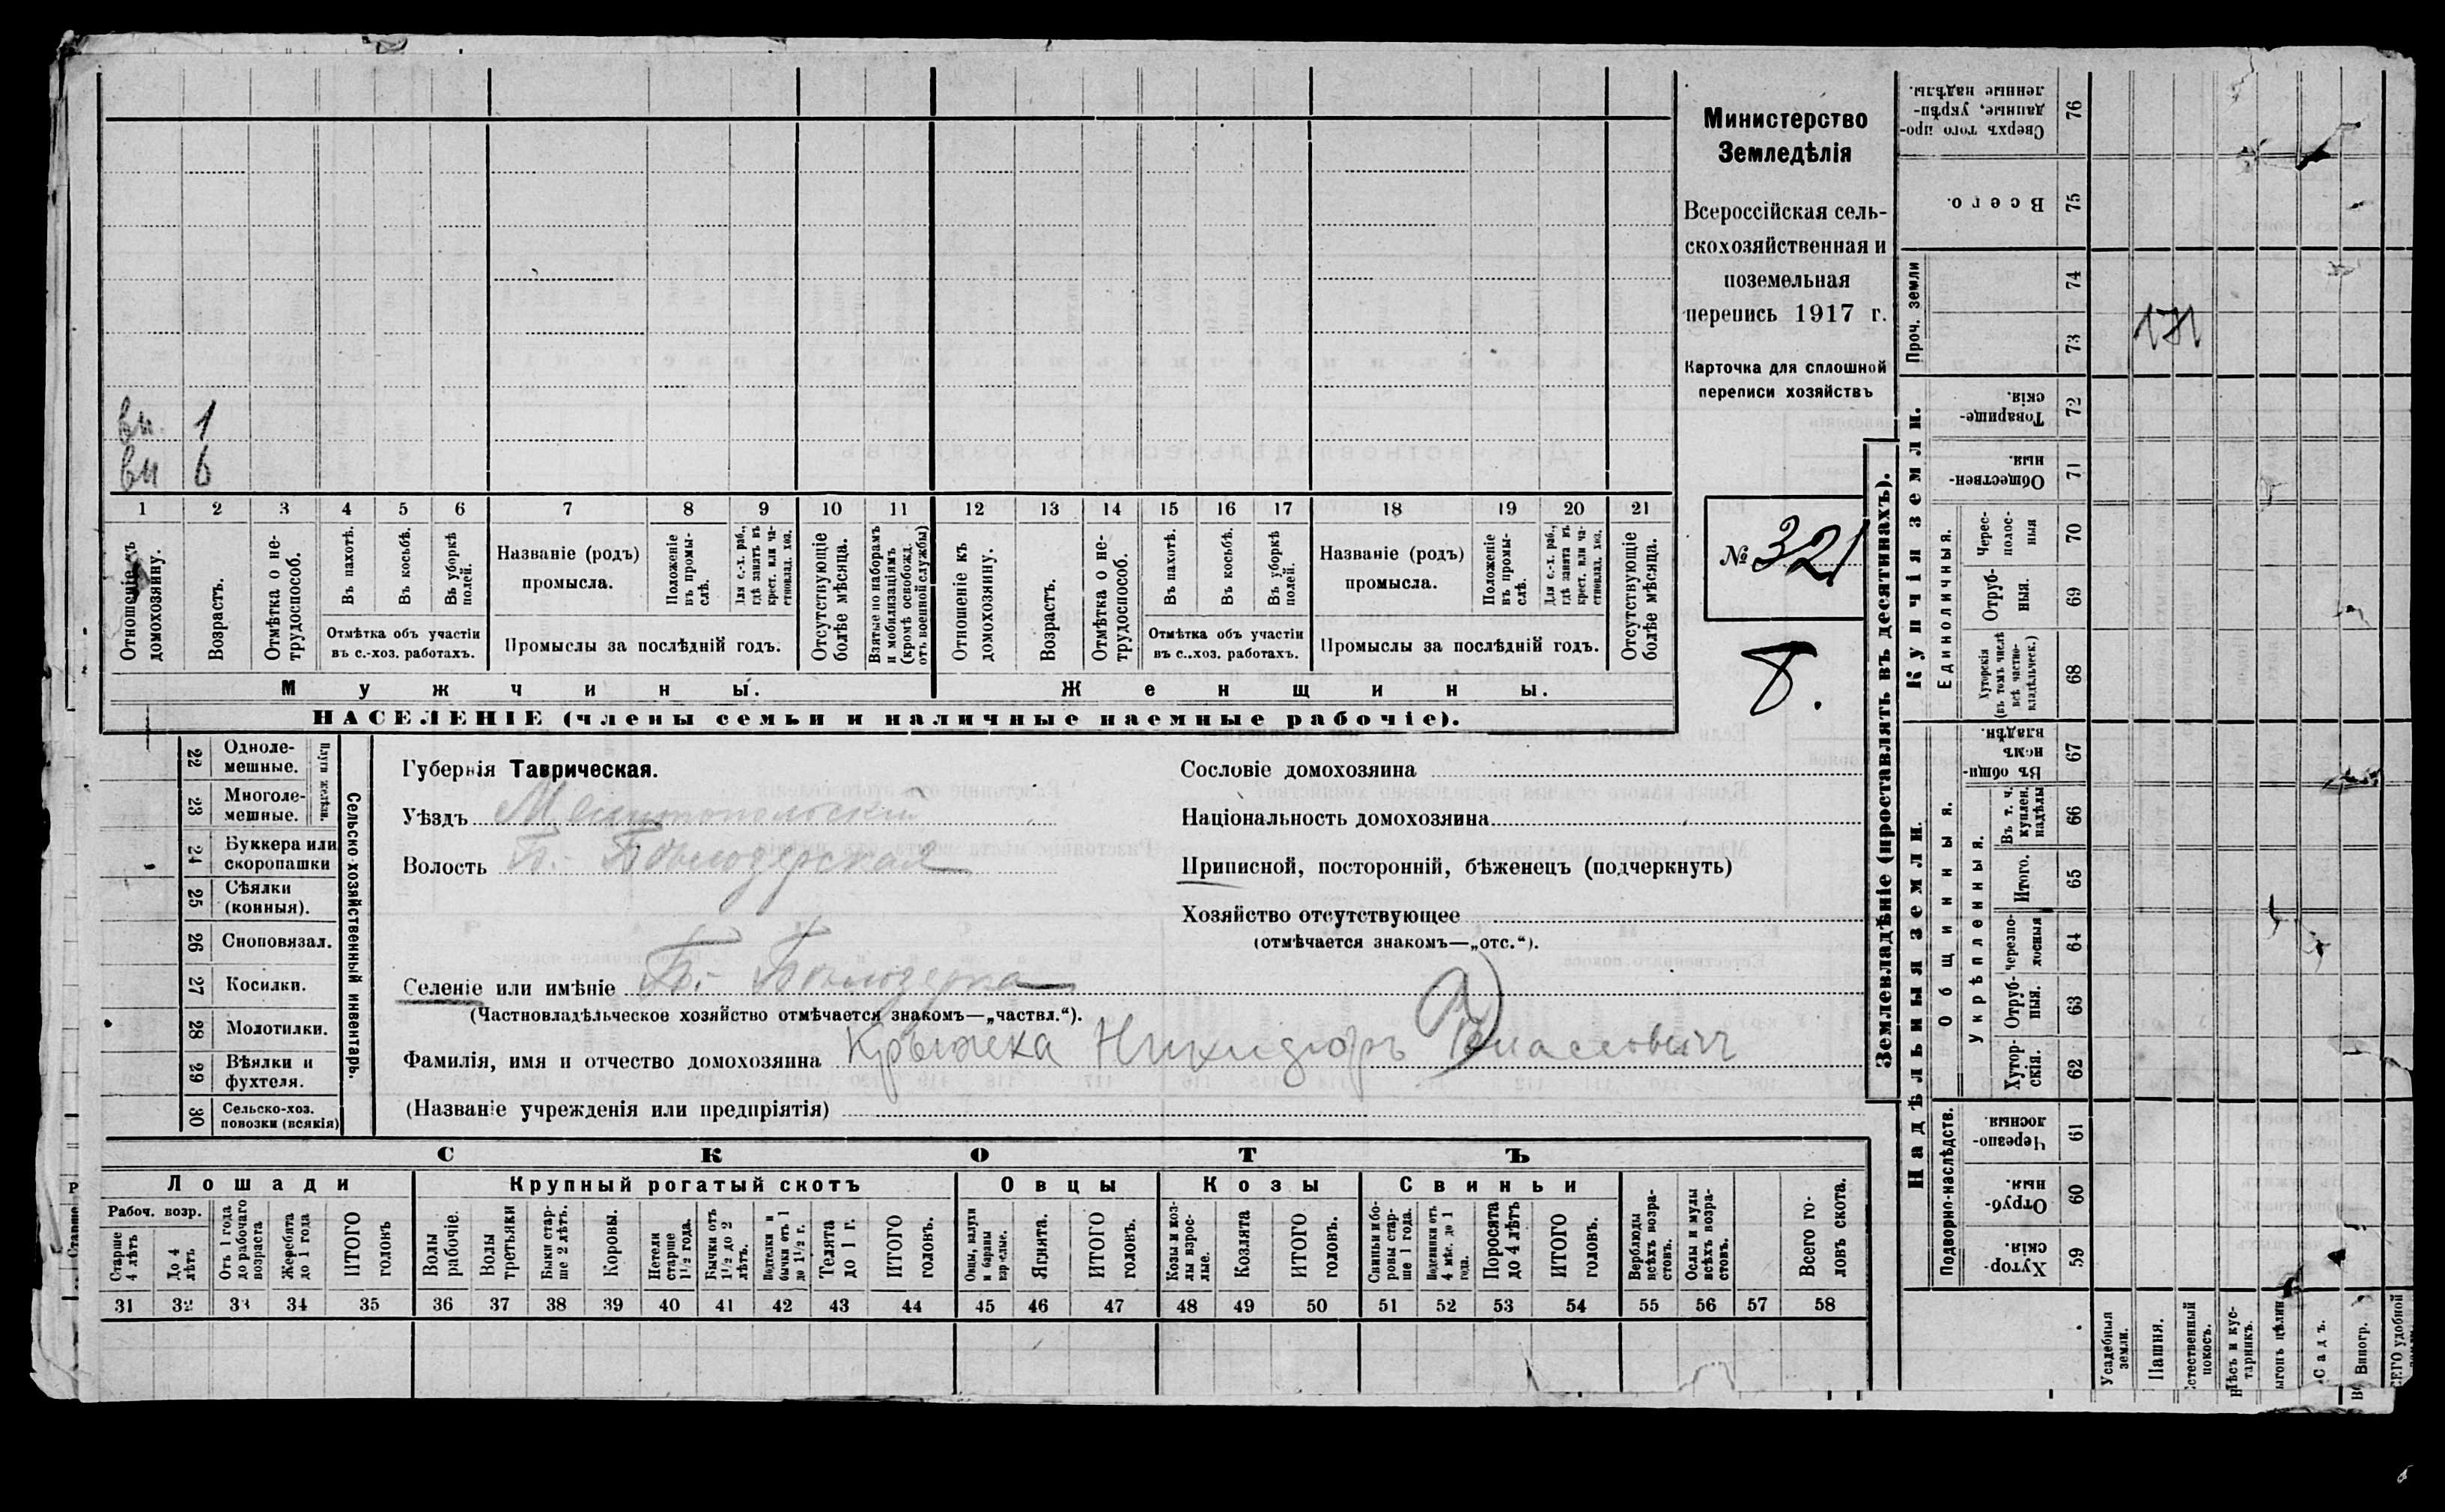 Министерство
Земледѣлія
Всероссійская сель-
скохозяйственная и
поземельная
перепись 1917 г.
Карточка для сплошной
переписи хозяйствъ
№ 321
8.
вн. 1
вн 6
1 2 3 4 5 6 7 8 9 10 11 12 13 14 15 16 17 18 19 20 21
Отношеніе къ домохозяину.
Возрастъ.
Отмѣтка о не-трудоспособ.
Въ пахотѣ.
Въ косьбѣ.
Въ уборкѣ полей.
Отмѣтка объ участіи
въ с.-хоз. работахъ.
Названіе (родъ)
промысла.
Положеніе въ промы-слѣ.
Для с.-х. раб., гдѣ занятъ въ крест. или ча-стновлад. хоз.
Промыслы за послѣдній годъ.
Отсутствующіе болѣе мѣсяца.
Взятые по наборамъ и мобилизаціямъ (кромѣ освобожд. отъ военной службы)
Отношеніе къ домохозяину.
Возрастъ.
Отмѣтка о не-трудоспособ.
Въ пахотѣ.
Въ косьбѣ.
Въ уборкѣ полей.
Отмѣтка объ участіи
въ с..хоз. работахъ.
Названіе (родъ)
промысла.
Положеніе въ промы-слѣ.
Для с.-х. раб., гдѣ занята въ крест. или ча-стновлад. хоз.
Промыслы за послѣдній годъ.
Отсутствующіе болѣе мѣсяца.
Мужчины. Женщины.
НАСЕЛЕНІЕ (члены семьи и наличные наемные рабочіе).
Сельско-хозяйственный инвентарь.
Плуги желѣзн.
22 Одноле-мешные.
23 Многоле-мешные.
24 Буккера или скоропашки
25 Сѣялки (конныя).
26 Сноповязал.
27 Косилки.
28 Молотилки.
29 Вѣялки и фухтеля.
30 Сельско-хоз. повозки (всякія)
Губернія Таврическая.
Уѣздъ Мелитопольскій
Волость Б.- Бѣлозерская
Селеніе или имѣніе Б.- Бѣлозерка
(Частновладѣльческое хозяйство отмѣчается знакомъ—„частвл.“).
Фамилія, имя и отчество домохозяина Никидоръ
(Названіе учрежденія или предпріятія)
Сословіе домохозяина
Національность домохозяина
Приписной, посторонній, бѣженецъ (подчеркнуть)
Хозяйство отсутствующее
(отмѣчается знакомъ—„отс.“).
СКОТЪ
Лошади Крупный рогатый скотъ Овцы Козы Свиньи
Рабоч. возр.
Старше 4 лѣтъ
До 4 лѣтъ
Отъ 1 года до рабочаго возраста
Жеребята до 1 года
ИТОГО головъ
Волы рабочіе.
Волы третьяки
Быки стар-ше 2 лѣтъ.
Коровы.
Нетели старше 1½ года.
Бычки отъ 1½ до 2 лѣтъ.
Подтелки и бычки отъ 1 до 1½ г.
Телята до 1 г.
ИТОГО головъ.
Овцы, валухи и бараны взрослые.
Ягнята.
ИТОГО головъ.
Козы и коз-лы взрос-лые.
Козлята
ИТОГО головъ.
Свиньи и бо-ровы стар-ше 1 года.
Подсвинки отъ 4 мѣс. до 1 года.
Поросята до 4 лѣтъ
ИТОГО головъ.
Верблюды всѣхъ возра-стовъ.
Ослы и мулы всѣхъ возра-стовъ.
Всего го-ловъ скота.
31 32 33 34 35 36 37 38 39 40 41 42 43 44 45 46 47 48 49 50 51 52 53 54 55 56 57 58
Землевладѣніе (проставлять въ десятинахъ).
Купчія земли.
Проч. земли
Единоличныя.
Сверхъ того про-данные, укрѣп-ленные надѣлы. 76
Всего. 75
74
73
Товарище-скія. 72
Обществен-ныя. 71
Черес-полос-ныя 70
Отруб-ныя. 69
Хуторскія (въ томъ числѣ всѣ частно-владѣльческ.) 68
Надѣльныя земли.
Общинныя.
Укрѣпленныя.
Въ общи-номъ владѣн. 67
Въ т. ч. куплен. надѣлы 66
Итого. 65
Черезпо-лосныя 64
Отруб-ныя. 63
Хутор-скія. 62
Подворно-наслѣдств.
Черезпо-лосныя 61
Отруб-ныя. 60
Хутор-скія. 59
Усадебныя земли.
Пашня.
стественный покосъ.
Лѣсъ и кус-тарникъ.
ыгонъ цѣлин
Садъ.
Виногр.
СЕГО удобной